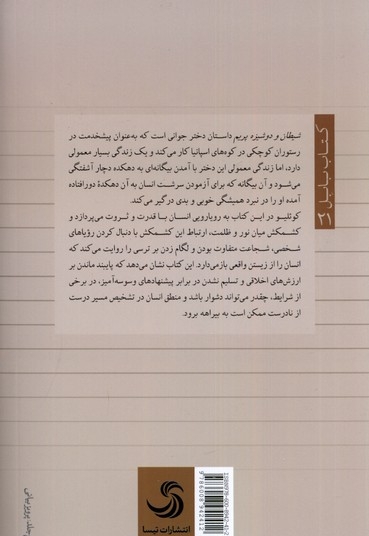 شیطان و دوشیزه پریم داستان دختر جوانی است که به‌عنوان پیشخدمت در
رستوران کوچکی در کوه‌های اسپانیا کار می‌کند و یک زندگی بسیار معمولی
دارد، اما زندگی معمولی این دختر با آمدن بیگانه‌ای به دهکده دچار آشفتگی
می‌شود و آن بیگانه که برای آزمودن سرشت انسان به آن دهکدهٔ دورافتاده
آمده او را در نبرد همیشگی خوبی و بدی درگیر می‌کند.
کوئلیو در این کتاب به رویارویی انسان با قدرت و ثروت می‌پردازد و
کشمکش میان نور و ظلمت، ارتباط این کشمکش با دنبال کردن رؤیاهای
شخصی، شجاعت متفاوت بودن و لگام زدن بر ترسی را روایت می‌کند که
انسان را از زیستن واقعی بازمی‌دارد. این کتاب نشان می‌دهد که پایبند ماندن بر
ارزش‌های اخلاقی و تسلیم نشدن در برابر پیشنهادهای وسوسه‌آمیز، در برخی
از شرایط، چقدر می‌تواند دشوار باشد و منطق انسان در تشخیص مسیر درست
از نادرست ممکن است به بیراهه برود.
کتاب بابل
ISBN978-600-8942-41-2
9786008942412
انتشارات تیسا
جلد: پرویز بیانی